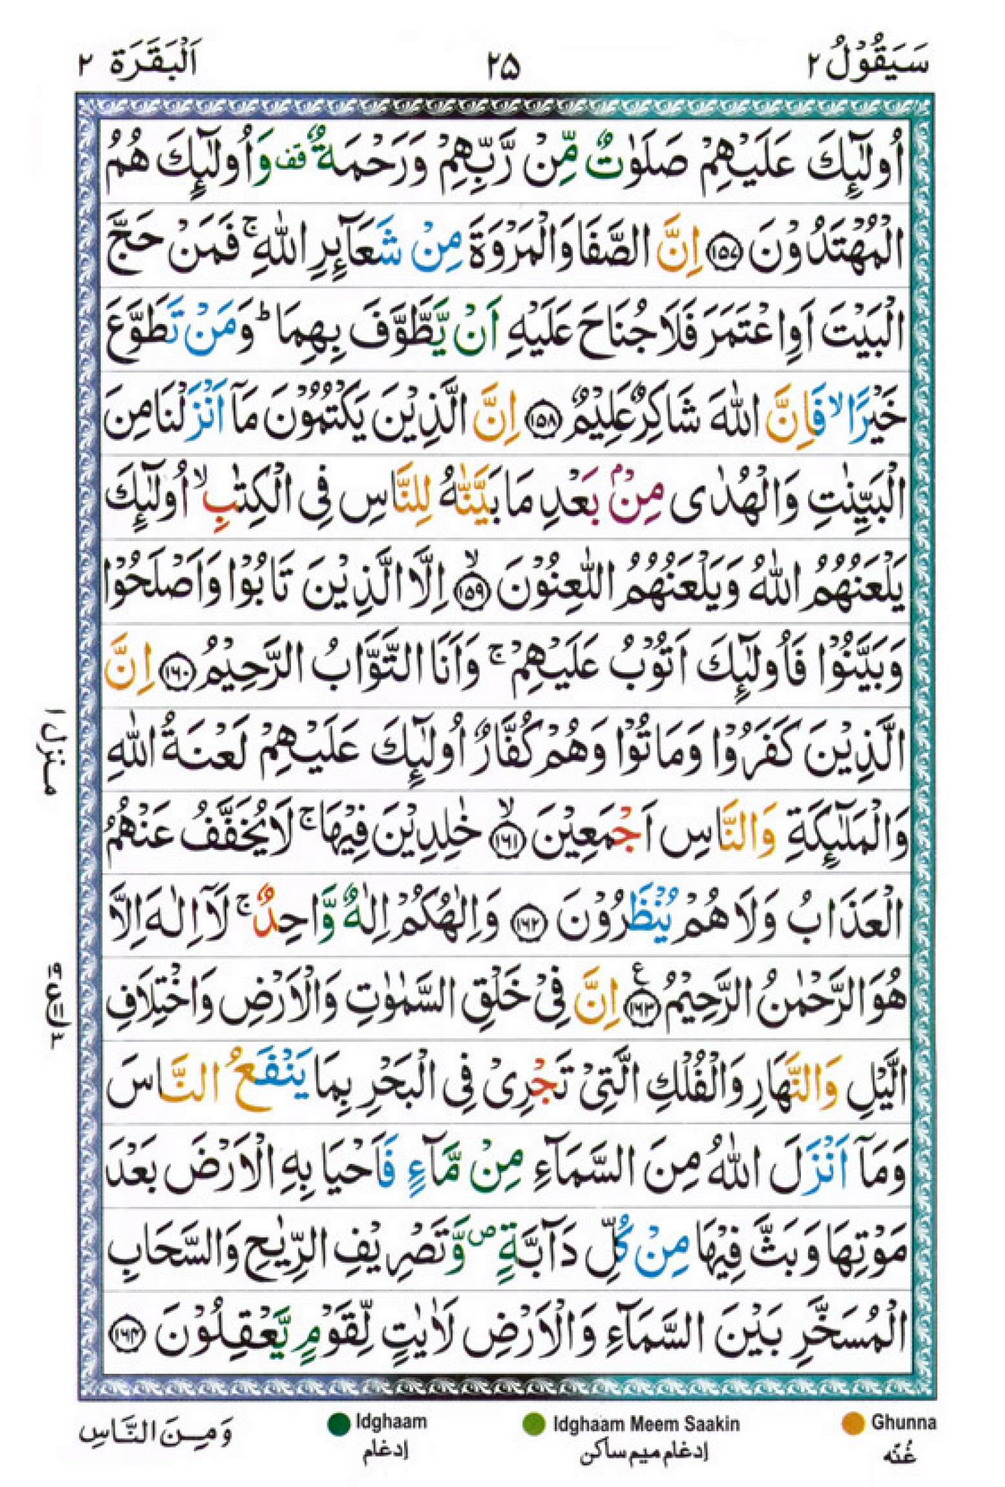 سَيَقُوْلُ ٢ ٢٥ اَلْبَقَرَة ٢
اُولٰٓئِكَ عَلَيْهِمْ صَلَوٰتٌ مِّنْ رَّبِّهِمْ وَرَحْمَةٌ قف وَاُولٰٓئِكَ هُمُ
الْمُهْتَدُوْنَ ﴿١٥٧﴾ اِنَّ الصَّفَا وَالْمَرْوَةَ مِنْ شَعَآئِرِ اللّٰهِ ۚ فَمَنْ حَجَّ
الْبَيْتَ اَوِ اعْتَمَرَ فَلَا جُنَاحَ عَلَيْهِ اَنْ يَّطَّوَّفَ بِهِمَا ؕ وَمَنْ تَطَوَّعَ
خَيْرًا ۙ فَاِنَّ اللّٰهَ شَاكِرٌ عَلِيْمٌ ﴿١٥٨﴾ اِنَّ الَّذِيْنَ يَكْتُمُوْنَ مَآ اَنْزَلْنَا مِنَ
الْبَيِّنٰتِ وَالْهُدٰى مِنْۢ بَعْدِ مَا بَيَّنّٰهُ لِلنَّاسِ فِى الْكِتٰبِ ۙ اُولٰٓئِكَ
يَلْعَنُهُمُ اللّٰهُ وَيَلْعَنُهُمُ اللّٰعِنُوْنَ ۙ﴿١٥٩﴾ اِلَّا الَّذِيْنَ تَابُوْا وَاَصْلَحُوْا
وَبَيَّنُوْا فَاُولٰٓئِكَ اَتُوْبُ عَلَيْهِمْ ۚ وَاَنَا التَّوَّابُ الرَّحِيْمُ ﴿١٦٠﴾ اِنَّ
الَّذِيْنَ كَفَرُوْا وَمَاتُوْا وَهُمْ كُفَّارٌ اُولٰٓئِكَ عَلَيْهِمْ لَعْنَةُ اللّٰهِ
منزل ١
وَالْمَلٰٓئِكَةِ وَالنَّاسِ اَجْمَعِيْنَ ۙ﴿١٦١﴾ خٰلِدِيْنَ فِيْهَا ۚ لَا يُخَفَّفُ عَنْهُمُ
الْعَذَابُ وَلَا هُمْ يُنْظَرُوْنَ ﴿١٦٢﴾ وَاِلٰهُكُمْ اِلٰهٌ وَّاحِدٌ ۚ لَآ اِلٰهَ اِلَّا
هُوَ الرَّحْمٰنُ الرَّحِيْمُ ﴿١٦٣﴾ ع اِنَّ فِىْ خَلْقِ السَّمٰوٰتِ وَالْاَرْضِ وَاخْتِلَافِ
الَّيْلِ وَالنَّهَارِ وَالْفُلْكِ الَّتِىْ تَجْرِىْ فِى الْبَحْرِ بِمَا يَنْفَعُ النَّاسَ
وَمَآ اَنْزَلَ اللّٰهُ مِنَ السَّمَآءِ مِنْ مَّآءٍ فَاَحْيَا بِهِ الْاَرْضَ بَعْدَ
مَوْتِهَا وَبَثَّ فِيْهَا مِنْ كُلِّ دَآبَّةٍ ص وَّتَصْرِيْفِ الرِّيٰحِ وَالسَّحَابِ
الْمُسَخَّرِ بَيْنَ السَّمَآءِ وَالْاَرْضِ لَاٰيٰتٍ لِّقَوْمٍ يَّعْقِلُوْنَ ﴿١٦٤﴾
Ghunna
غُنّه
Idghaam Meem Saakin
إدغام ميم ساكن
Idghaam
إدغام
وَمِنَ النَّاسِ